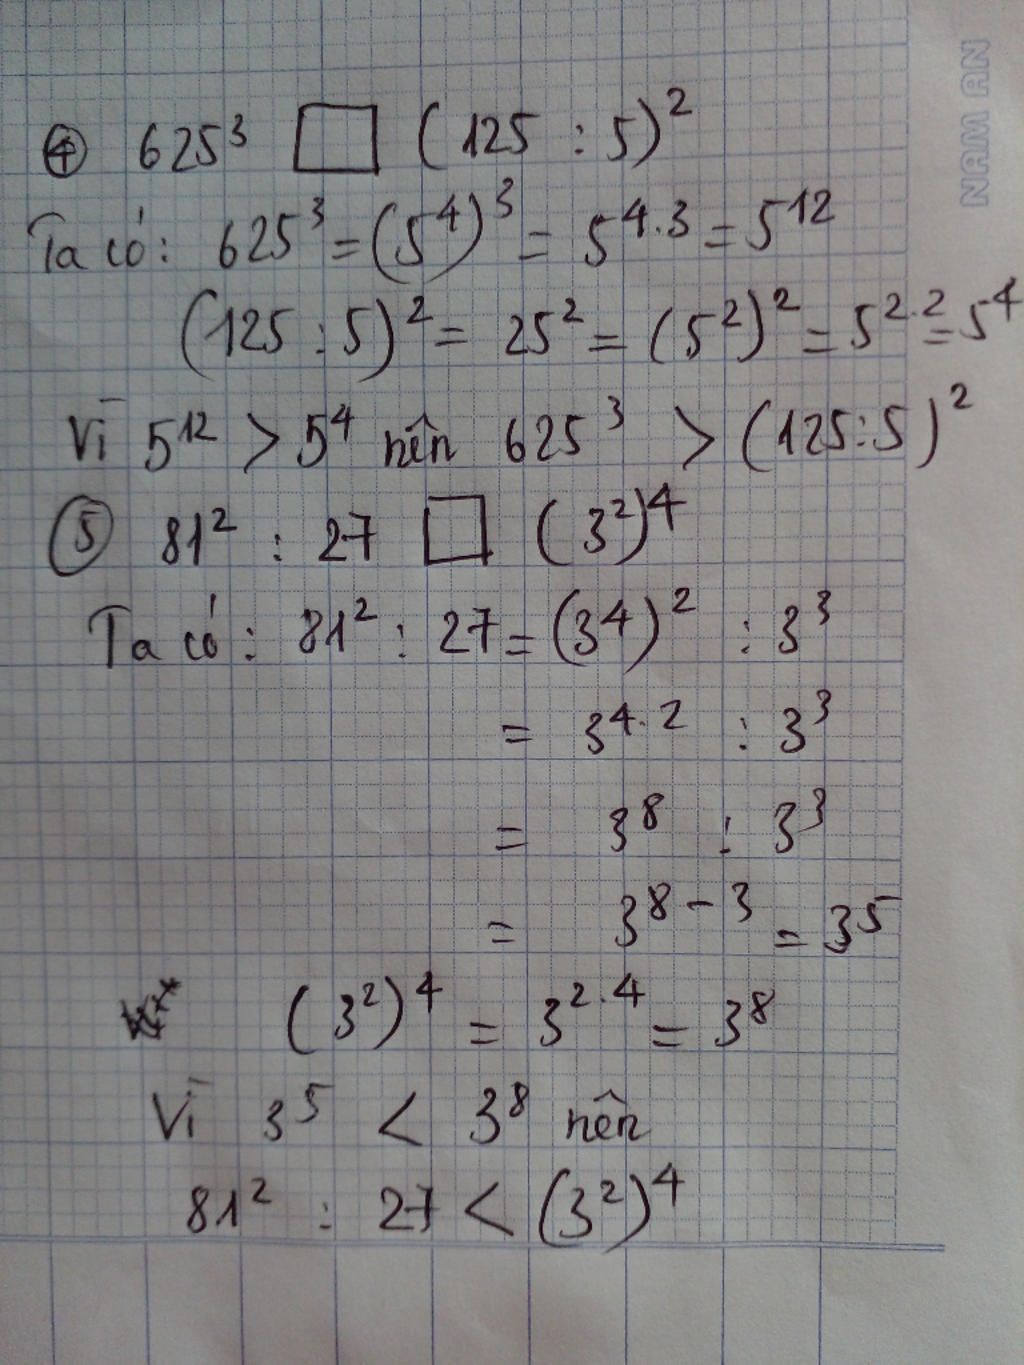 ④ 625³ □ (125 : 5)²
Ta có: 625³ = (5⁴)³ = 5⁴·³ = 5¹²
(125 : 5)² = 25² = (5²)² = 5²·² = 5⁴
Vì 5¹² > 5⁴ nên 625³ > (125:5)²
⑤ 81² : 27 □ (3²)⁴
Ta có: 81² : 27 = (3⁴)² : 3³
= 3⁴·² : 3³
= 3⁸ : 3³
= 3⁸⁻³ = 3⁵
(3²)⁴ = 3²·⁴ = 3⁸
Vì 3⁵ < 3⁸ nên
81² : 27 < (3²)⁴
NAM AN